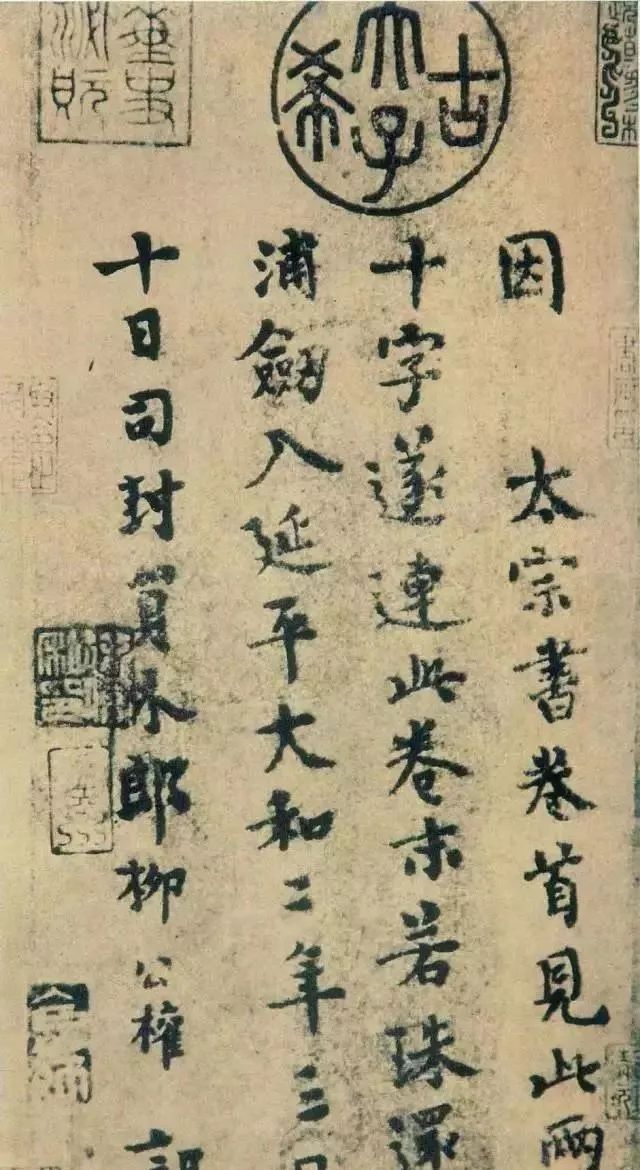 古希天子
因 太宗書卷首見此兩
十字遂連此卷末若珠還
浦劍入延平大和二年三月
十日司封員外郎柳公權 記